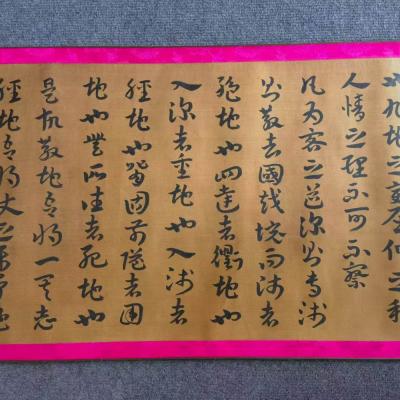 也九地之變屈伸之利
人情之理不可不察
凡為客之道深則專淺
則散去國越境而師者
絕地也四達者衢地也
入深者重地也入淺者
輕地也背固前隘者圍
地也無所往者死地也
是故散地吾將一其志
輕地吾將使之屬爭地